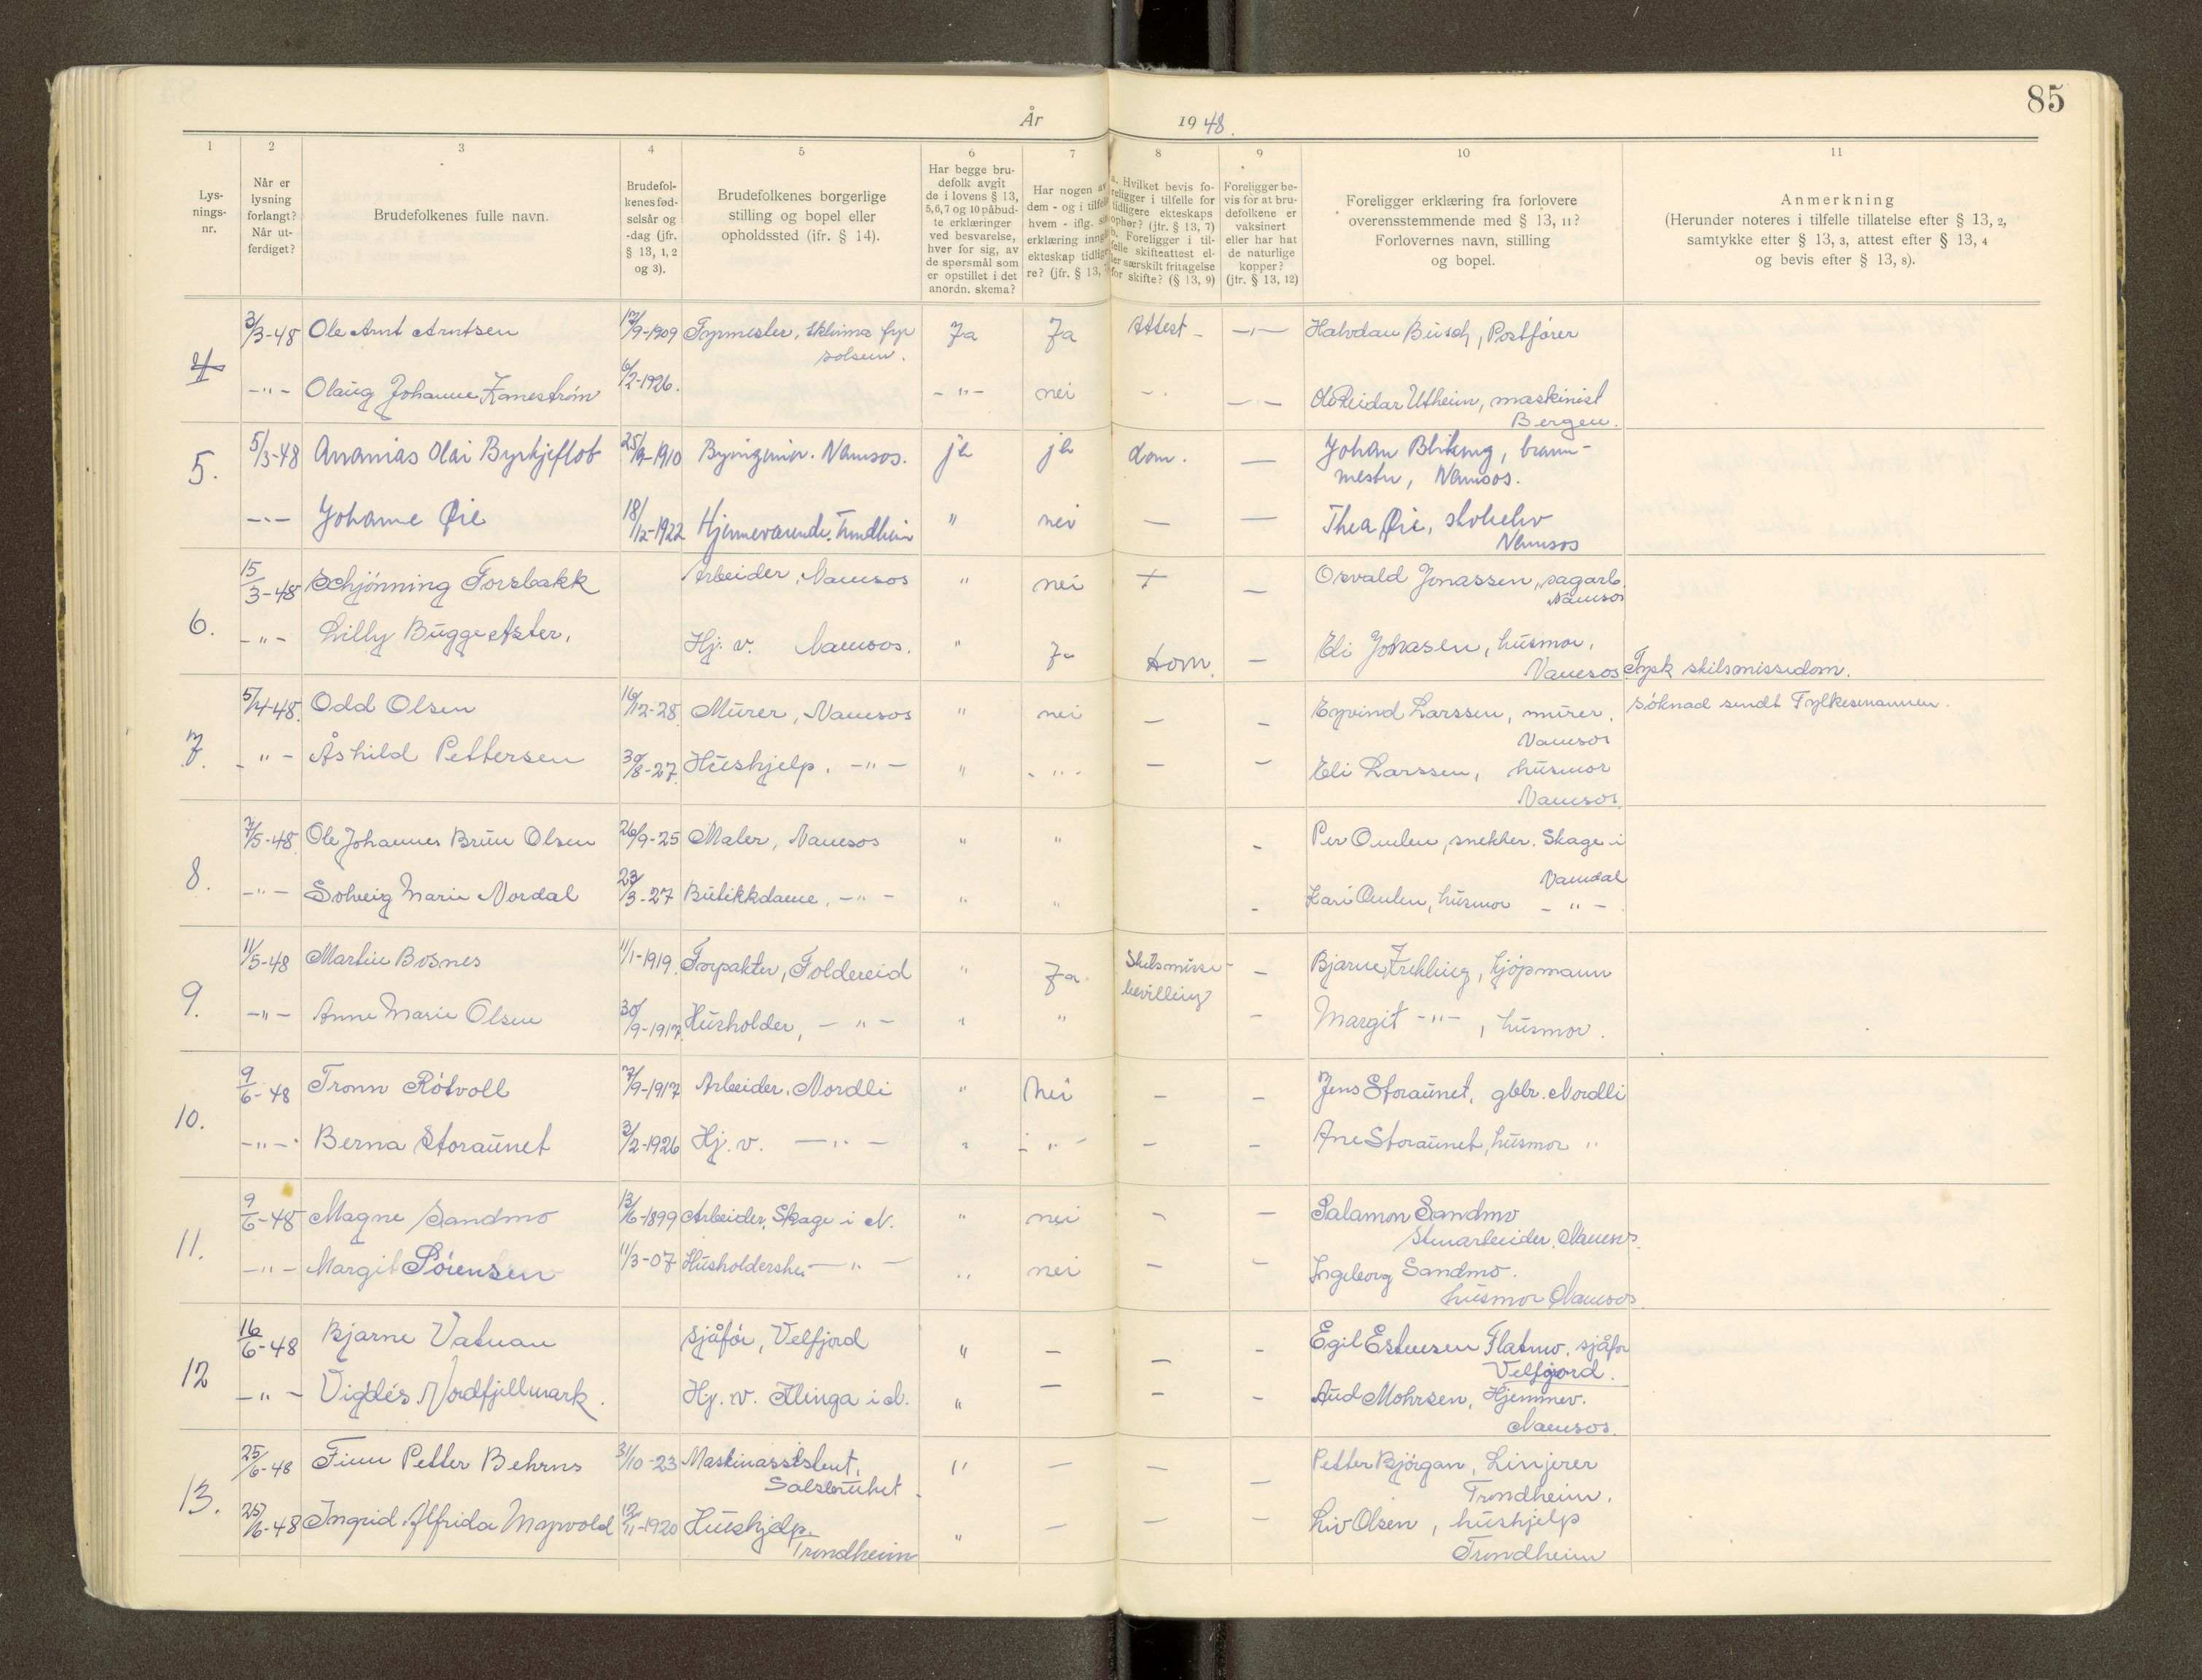 85
År 1948.
1 2 3 4 5 6 7 8 9 10 11
Lysnings-nr.
Når er lysning forlangt? Når utferdiget?
Brudefolkenes fulle navn.
Brudefolkenes fødselsår og -dag (jfr. § 13, 1, 2 og 3).
Brudefolkenes borgerlige stilling og bopel eller opholdssted (jfr. § 14).
Har begge brudefolk avgit de i lovens § 13, 5, 6, 7 og 10 påbudte erklæringer ved besvarelse, hver for sig, av de spørsmål som er opstillet i det anordn. skema?
Har nogen av dem - og i tilfelle hvem - iflg. erklæring inngått ekteskap tidligere? (jfr. § 13,
a. Hvilket bevis foreligger i tilfelle for tidligere ekteskaps ophør? (jfr. § 13, 7)
b. Foreligger i tilfelle skifteattest eller særskilt fritagelse for skifte? (§ 13, 9)
Foreligger bevis for at brudefolkene er vaksinert eller har hat de naturlige kopper? (jfr. § 13, 12)
Foreligger erklæring fra forlovere overensstemmende med § 13, 11? Forlovernes navn, stilling og bopel.
Anmerkning
(Herunder noteres i tilfelle tillatelse efter § 13, 2, samtykke efter § 13, 3, attest efter § 13, 4 og bevis efter § 13, 8).
4 3/3-48 Ole Arnt Arntsen 17/9-1909 Fyrmester, Sklinna fyr Ja Ja Attest - -"- Halvdan Busch, Postfører
solsem.
-"- Olaug Johanne Zanestrøm 6/2-1926. -"- nei - - Reidar Utheim, maskinist
Bergen.
5. 5/3-48 Ananias Olai Byrkjeflot 25/9-1910 Byingeniør. Namsos. ja ja dom. — Johan Bliking, brann-
mester, Namsos.
-"- Johanne Øie 18/12-1922 Hjemmeværende. Trondheim " nei — — Thea Øie,
Namsos
6. 15/3-48 Schjønning Forsbakk Arbeider, Namsos " nei + — Osvald Jonassen, sagarb.
Namsos
-"- Lilly Bugge Aster. Hj. v. Namsos. " Ja Dom. — Eli Jonasen, husmor,
Namsos Tysk skilsmissedom.
7. 5/4-48. Odd Olsen 16/12-28. Murer, Namsos " nei — - Eyvind Larssen, murer. søknad sendt Fylkesmannen.
Namsos
-"- Åshild Pettersen 30/8-27. Hushjelp. -"- " -"- — - Eli Larssen, husmor
Namsos.
8. 7/5-48. Ole Johannes Brun Olsen 26/9-25 Maler, Namsos " " - Per Omlen, snekker. Skage i
Namdal
-"- Solveig Marie Nordal 23/3-27 Butikkdame, -"- " " - Kari Omlen, husmor -"-
9. 11/5-48 Martin Bosnes 11/1-1919. Forpakter, Foldereid " Ja Skilsmisse-
bevilling - Bjarne, kjøpmann
-"- Anne Marie Olsen 30/9-1917. Husholder, -"- " " - Margit -"-, husmor.
10. 9/6-48 Tronn Røtvoll 7/9-1917 Arbeider. Nordli " Nei - - Jens Storaunet. gbbr. Nordli
-"- Berna Storaunet 3/2-1926 Hj. v. -"- " -"- - - Ane Storaunet, husmor "
11. 9/6-48 Magne Sandmo 13/6-1899 Arbeider, Skage i N. " nei - - Salamon Sandmo
Stuarbeider, Namsos.
-"- Margit Sørensen 11/3-07 Husholderske -"- " nei - - Ingeborg Sandmo.
husmor Namsos
12 16/6-48 Bjarne Vatnan sjåfør, Velfjord " — — - Egil Estensen Flatmo. sjåfør
Velfjord.
-"- Vigdis Nordfjellmark. Hj. v. Klinga i N. " — — - Aud Mohrsen, Hjemmev.
Namsos.
13. 25/6-48 Finn Petter Behrns 31/10-23 Maskinassistent, " — — — Petter Bjørgan, Linjerer
Salsbruket. Trondheim.
25/6-48 Ingrid Alfrida Myrvold 12/11-1920 Hushjelp " — — — Liv Olsen, hushjelp
Trondheim Trondheim